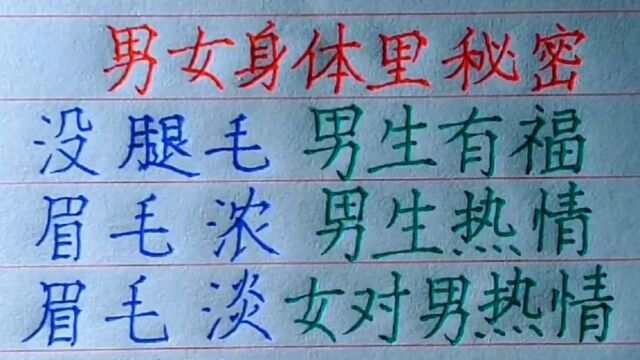 男女身体里秘密
没腿毛 男生有福
眉毛浓 男生热情
眉毛淡 女对男热情